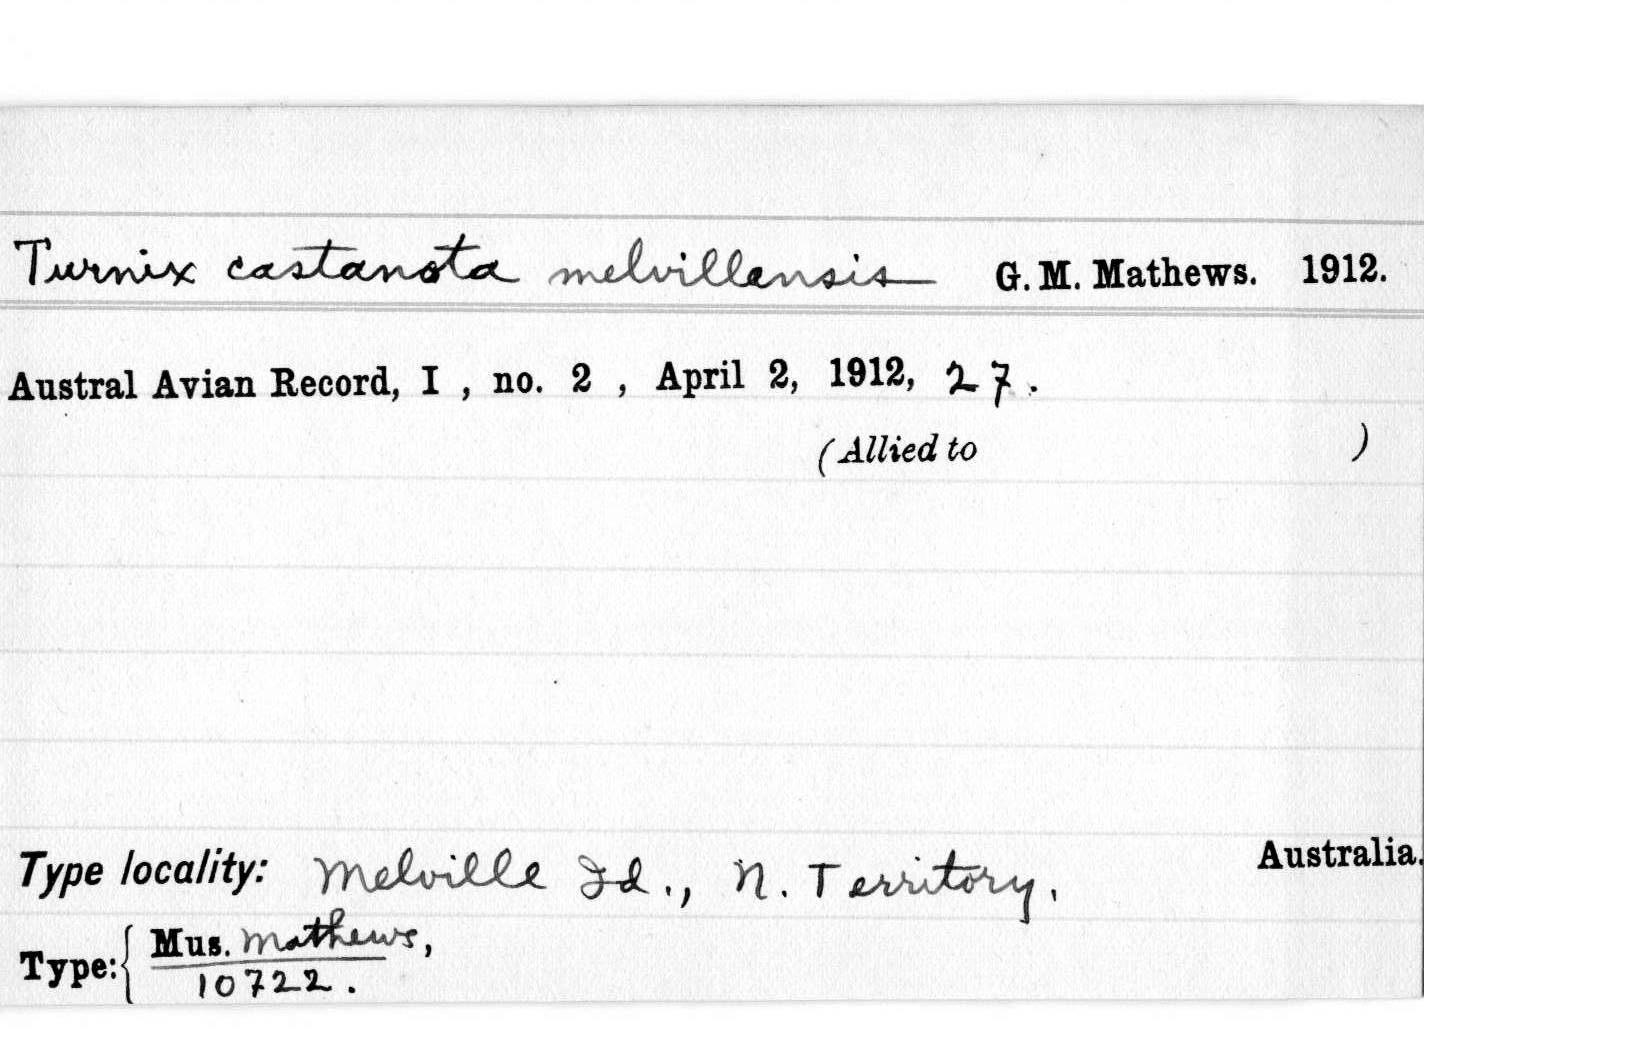 Turnix castanota melvillensis G. M. Mathews. 1912.
Austral Avian Record, I , no. 2 , April 2, 1912, 27.
(Allied to )
Type locality: Melville Id., N. Territory, Australia.
Type: { Mus. Mathews,
10722.